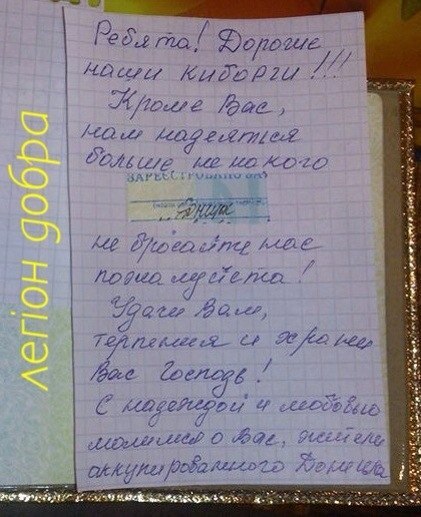 Ребята! Дорогие
наши киборги!!!
Кроме Вас,
нам надеяться
больше не на кого
ЗАРЕЄСТРОВАНО
не бросайте нас
пожалуйста!
Удачи Вам,
терпения и храни
Вас Господь!
С надеждой и любовью
молимся о Вас, жители
аккупированного Донецка
легіон добра